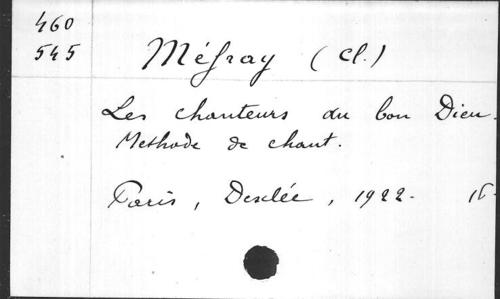 460
545
Méfray (Cl.)
Les chanteurs du bon Dieu.
Methode de chant.
Paris, Desclée, 1922. 16